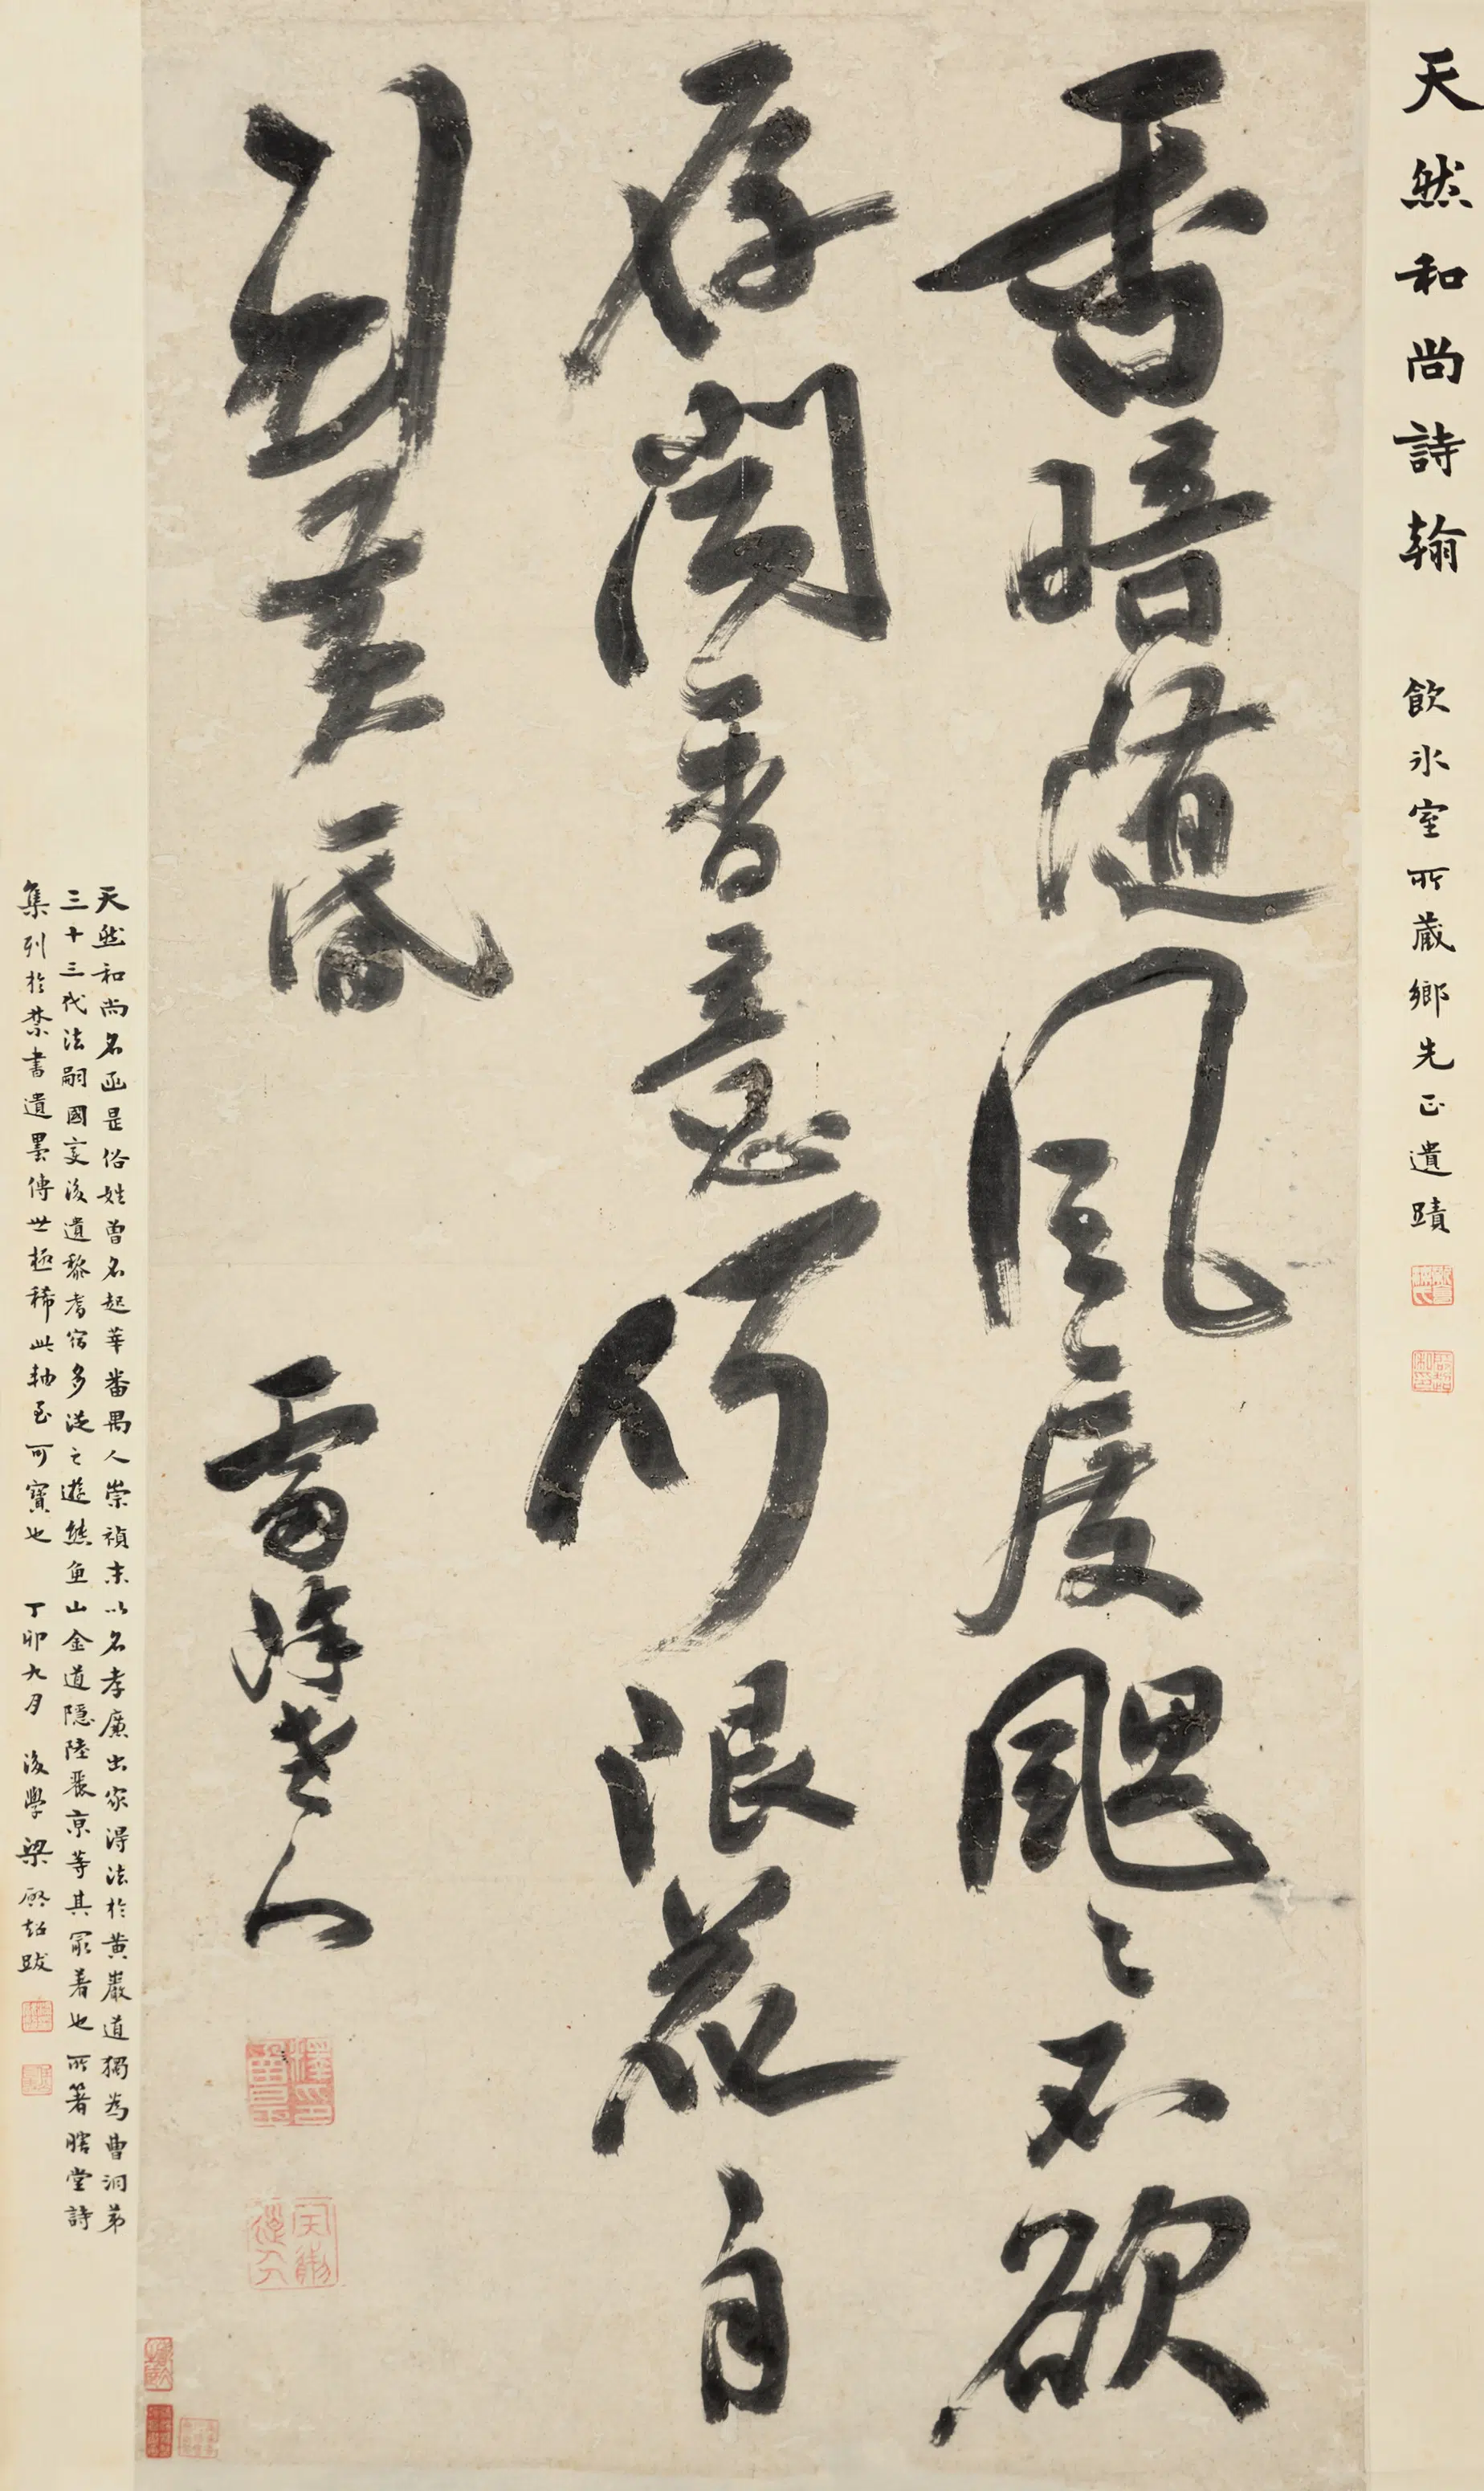 天然和尚詩翰 飲冰室所藏鄉先正遺蹟
香暗随風度颸〻不欲
存聞香意何限花自
到黄昏
雷峰老人
天然和尚名函是俗姓曾名起莘番禺人崇禎末以名孝廉出家得法於黄巖道獨為曹洞弟
三十三代法嗣國變後遺黎耆宿多從之遊熊魚山金道隱陸麗京等其最著也所著瞎堂詩
集列於禁書遺墨傳世極稀此軸至可寶也 丁卯九月 後學梁啟超跋